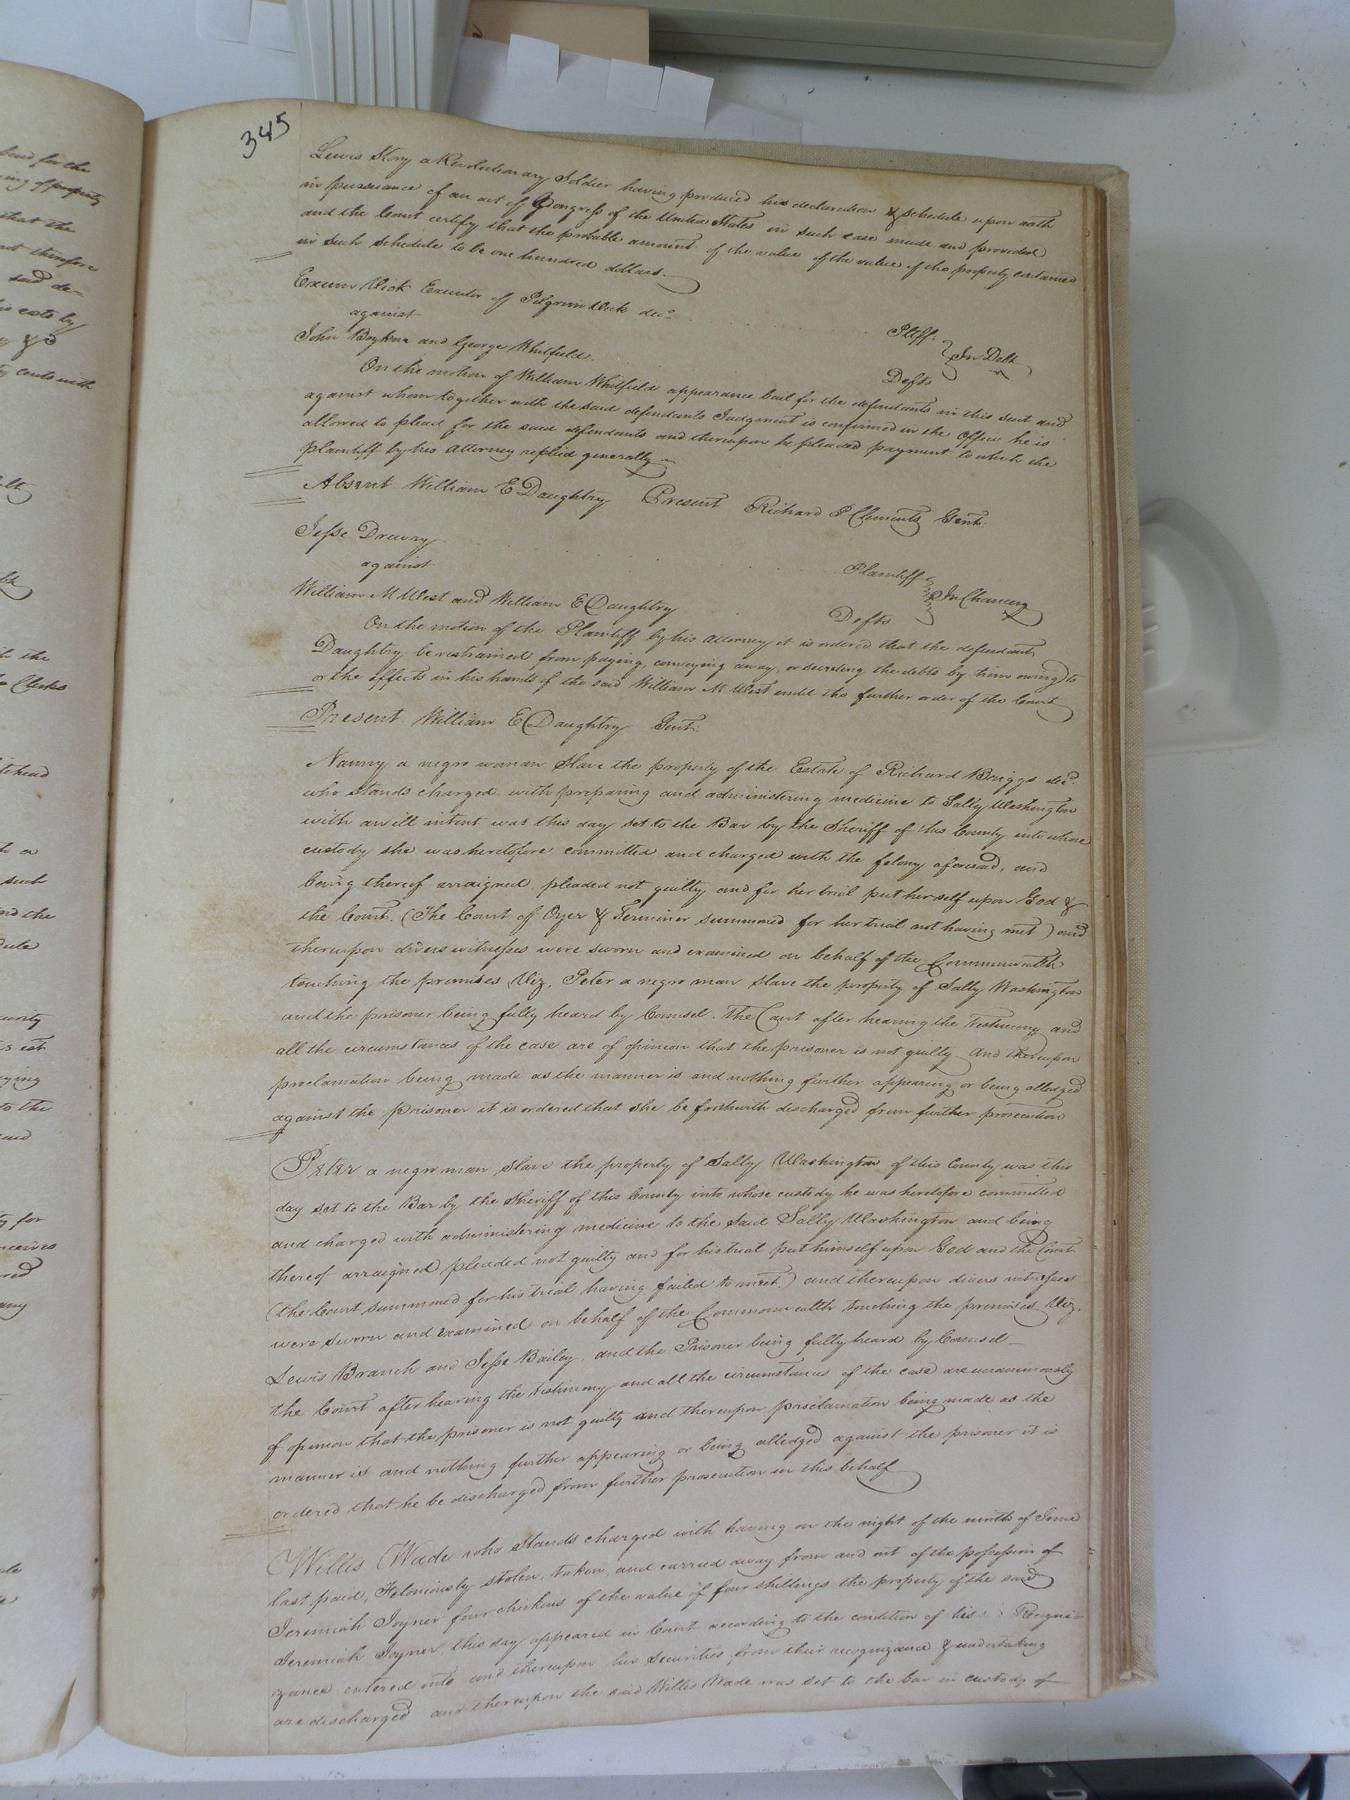 345
Lewis Story a Revolutionary Soldier having produced his declaration & schedule upon oath
in pursuance of an act of Congress of the United States in such case made and provided
and the Court certify that the probable amount of the value of the value of the property contained
in such schedule to be one hundred dollars
Exum Vick Executor of Pilgrim Vick decd. Pltff.
against In Debt
John Boykin and George Whitfield. Defts
On the motion of William Whitfield appearance bail for the defendants in this suit and
against whom together with the said defendants Judgment is confirmed in the Office he is
allowed to plead for the said defendants and thereupon he pleaded payment to which the
Plaintiff by his attorney replied generally
Absent William E Daughtry Present Richard P Clements Gent.
Jesse Drewry Plaintiff
against In Chancery
William M West and William E Daughtry Defts
On the motion of the Plaintiff by his attorney it is ordered that the defendant
Daughtry be restrained from paying, conveying away, or secreting the debts by him owing to
or the effects in his hands of the said William M West until the further order of the Court
Present William E Daughtry Gent.
Nanny, a negro woman Slave the property of the Estate of Richard Briggs decd.
who stands charged with preparing and administering medicine to Sally Washington
with an ill intent was this day set to the Bar by the Sheriff of this County into whose
custody she was heretofore committed and charged with the felony aforesaid, and
being thereof arraigned pleaded not guilty and for her trial put herself upon God &
the Court. (The Court of Oyer & Terminer summoned for her trial not having met) and
thereupon divers witnesses were sworn and examined on behalf of the Commonwealth
touching the premises Viz, Peter a negro man slave the property of Sally Washington
and the prisoner being fully heard by Counsel. The Court after hearing the Testimony and
all the circumstances of the case are of opinion that the prisoner is not guilty and thereupon
proclamation being made as the manner is and nothing further appearing or being alledged
against the prisoner it is ordered that she be forthwith discharged from further prosecution
Peter a negro man slave the property of Sally Washington of this County was this
day set to the Bar by the Sheriff of this County into whose custody he was heretofore committed
and charged with administering medicine to the said Sally Washington and being
thereof arraigned pleaded not guilty and for his trial put himself upon God and the Court
(the Court summoned for his trial having failed to meet.) and thereupon divers witnesses
were sworn and examined on behalf of the Commonwealth touching the premises Viz,
Lewis Branch and Jesse Bailey, and the Prisoner being fully heard by Counsel
the Court after hearing the testimony and all the circumstances of the case are unanimously
of opinion that the prisoner is not guilty and thereupon proclamation being made as the
manner is and nothing further appearing or being alledged against the prisoner it is
ordered that he be discharged from further prosecution in this behalf
Willis Wade who stands charged with having on the night of the ninth of June
last past, Feloniously stolen, taken and carried away from and out of the possession of
Jeremiah Joyner four chickens of the value of four shillings the property of the said
Jeremiah Joyner, this day appeared in Court according to the condition of his Recogni-
zance entered into and thereupon his Securities from their recognizance & undertaking
are discharged and thereupon the said Willis Wade was set to the bar in custody of